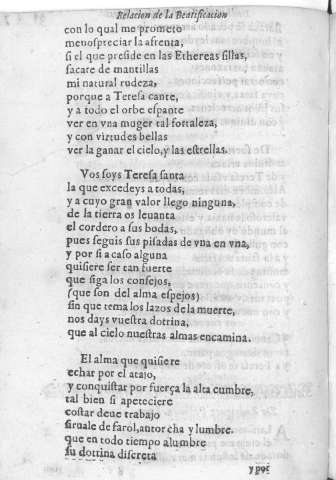 Relacion de la Beatificacion
con lo qual me prometo
menospreciar la afrenta,
si el que preside en las Ethereas sillas,
sacare de mantillas
mi natural rudeza,
porque a Teresa cante,
y a todo el orbe espante
ver en vna muger tal fortaleza,
y con virtudes bellas
ver la ganar el cielo, y las estrellas.
Vos soys Teresa santa
la que excedeys a todas,
y a cuyo gran valor llego ninguna,
de la tierra os leuanta
el cordero a sus bodas,
pues seguis sus pisadas de vna en vna,
y por si a caso alguna
quisiere ser tan fuerte
que siga los consejos,
(que son del alma espejos)
sin que tema los lazos de la muerte,
nos days vuestra dotrina,
que al cielo nuestras almas encamina.
El alma que quisiere
echar por el atajo,
y conquistar por fuerça la alta cumbre,
tal bien si apeteciere
costar deue trabajo
siruale de farol, antorcha y lumbre.
que en todo tiempo alumbre
su dotrina discreta
y por